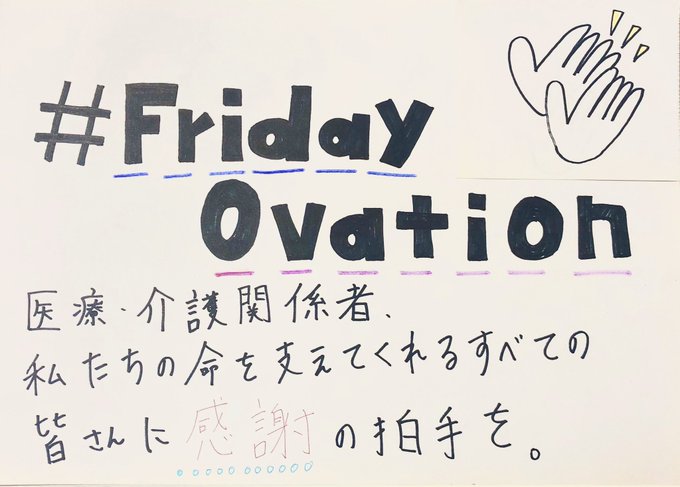 #Friday
Ovation
医療·介護関係者、
私たちの命を支えてくれるすべての
皆さんに感謝の拍手を。